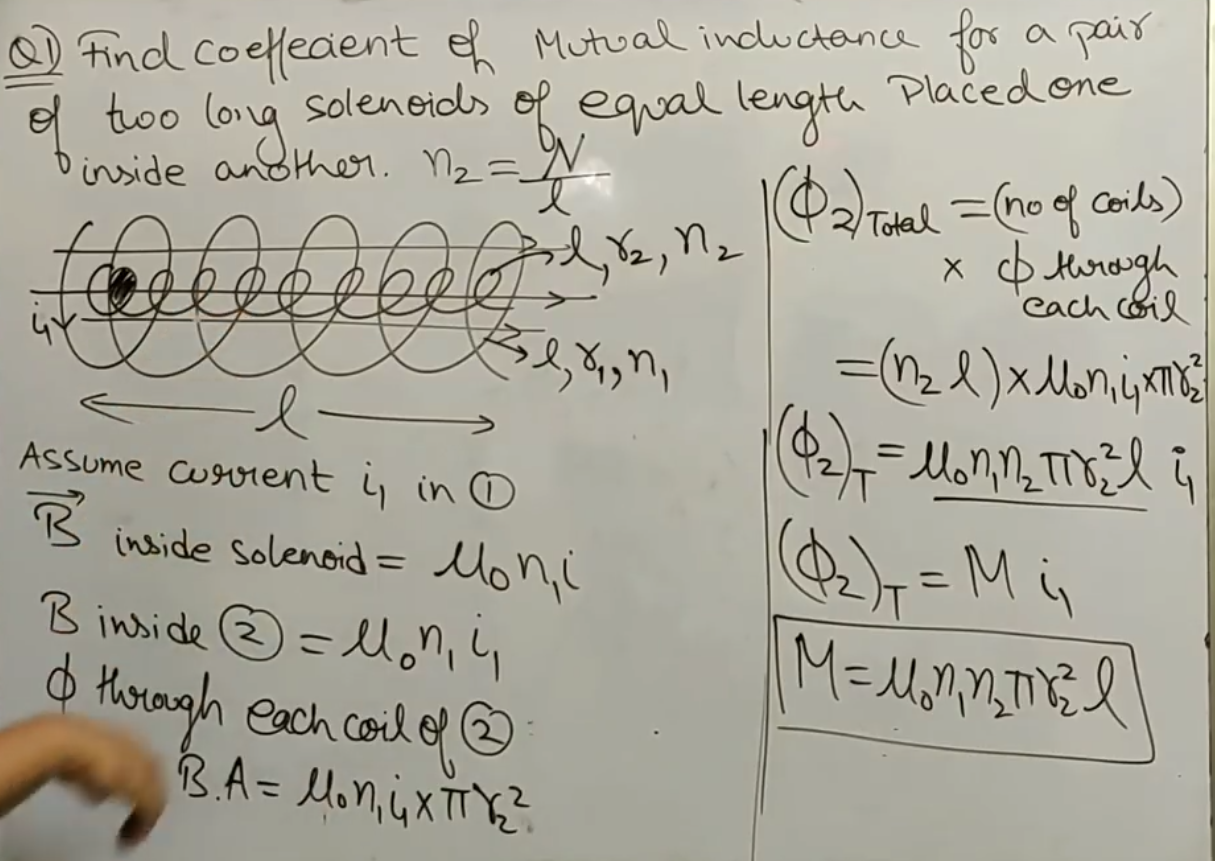 Q1) Find coeffecient of Mutual inductance for a pair
of two long solenoids of equal length Placed one
inside another. n₂ = N/l
l, r₂, n₂
i₁
l, r₁, n₁
l
Assume current i₁ in ①
B⃗ inside solenoid = μ₀n₁i
B inside ② = μ₀n₁i₁
ϕ through each coil of ②
B.A = μ₀n₁i₁ × πr₂²
(ϕ₂)Total = (no of coils)
× ϕ through
each coil
= (n₂ l) × μ₀n₁i₁ × πr₂²
(ϕ₂)T = μ₀n₁n₂πr₂²l i₁
(ϕ₂)T = M i₁
M = μ₀n₁n₂πr₂²l